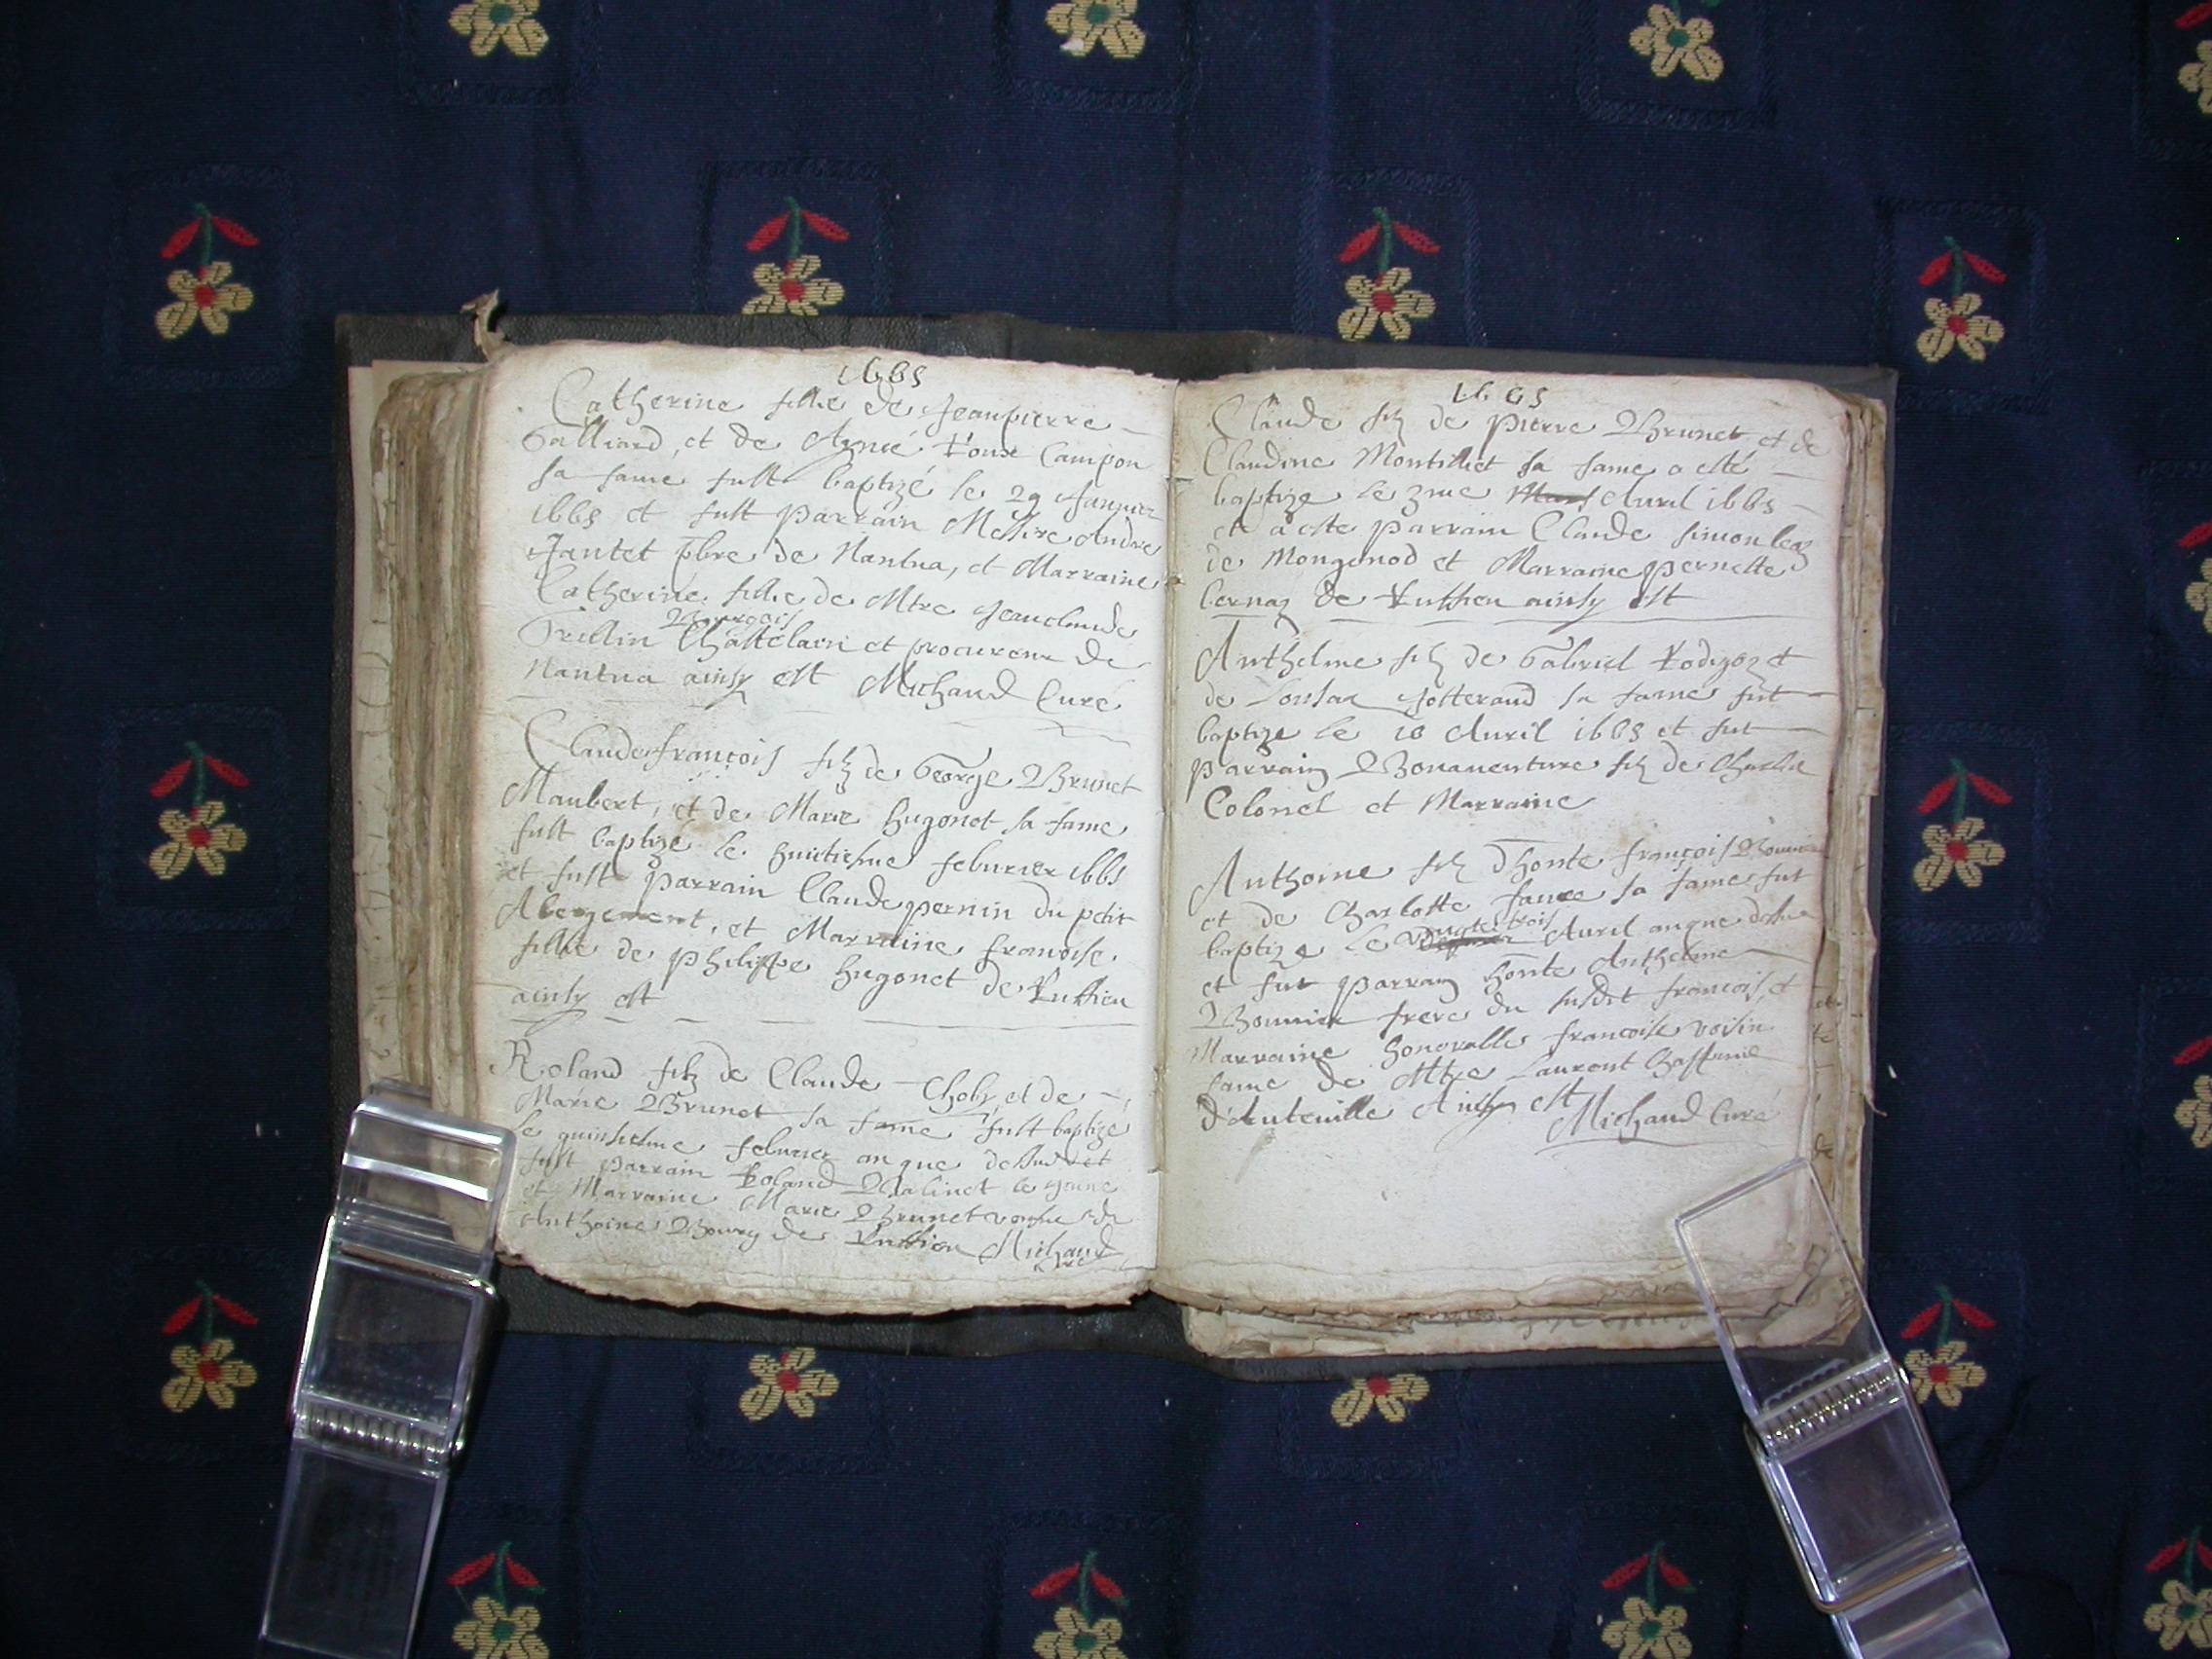 1665
Catherine fille de Jeanpierre
Galliard, et de Aymé Roux Campon
sa fame fust baptizé le 29 Januier
1665 et fust parrain Messire Andre
Jantet pbre de Nantua, et Marraine
Catherine fille de Mtre Jeanclaude
Bourgois
Grillin Chastelain et procureur de
Nantua ainsy est Michaud Curé
Claudefrançois filz de George Brunet
Maubert, et de Marie hugonet sa fame
fust baptizé le huitiesme feburier 1665
et fust parrain Claude pernin du petit
Abergement, et Marraine francoise
fille de philippe hugonet de Ruffieu
ainsy est
Roland filz de Claude Choby et de
Marie Brunet sa fame fust baptize
le quinsiesme feburier an que dessus et
fust parrain Roland Balinet le jeune
et Marraine Marie Brunet vefue de
Anthoine Bourg de Ruffieu Michaud
Curé
1665
Claude filz de pierre Brunet et de
Claudine Montillet sa fame a esté
baptize le 3me Mars Auril 1665
et a esté parrain Claude simon
de Mongonod et Marraine pernette
bernaz de Ruffieu ainsy est
Anthelme filz de Gabriel Rodigoz et
de Jotterand sa fame fut
baptize le 10 Auril 1665 et fut
parrain Bonauenture filz de Charles
Colonel et Marraine
Anthoine filz dhonte françois Bonnier
et de Charlotte faure sa fame fut
vingte trois
baptize le Auril an que dessus
et fut parrain honte Anthelme
Bonnier frere du susdit francois, et
Marraine honorable francoise voisin
fame de Mtre Laurent
d'Auteuille Ainsy est
Michaud Curé